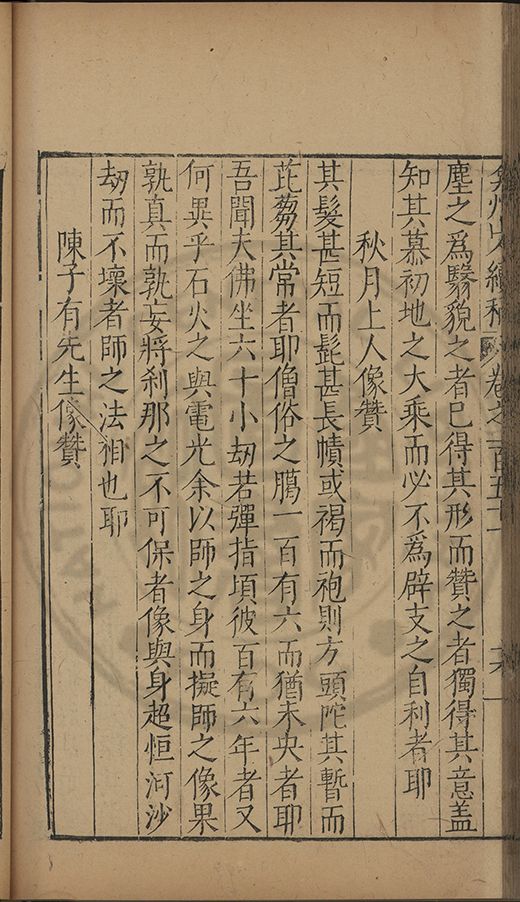 弇州山人續稿 卷之一百五十一
塵之爲翳貌之者已得其形而贊之者獨得其意盖
知其慕初地之大乘而必不爲辟支之自利者耶
秋月上人像贊
其髮甚短而髭甚長幘或褐而袍則方頭陀其暫而
苾蒭其常者耶僧俗之臈一百有六而猶未央者耶
吾聞大佛坐六十小刼若彈指頃彼百有六年者又
何異乎石火之與電光余以師之身而擬師之像果
孰真而孰妄將刹那之不可保者像與身超恒河沙
刼而不壞者師之法相也耶
陳子有先生像贊